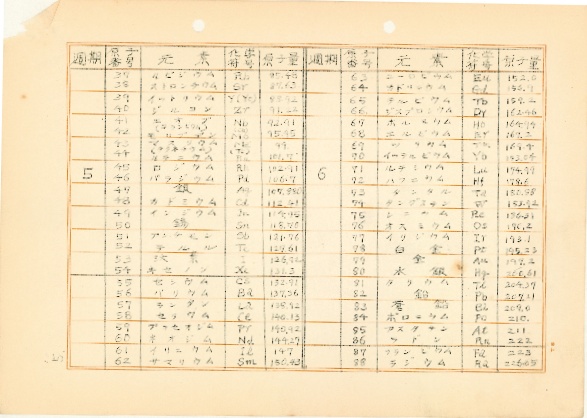 週期 原子番号 元素 化学符号 原子量 週期 原子番号 元素 化学符号 原子量
37 ルビジウム Rb 85.48 63 ユーロピウム Eu 152.0
38 ストロンチウム Sr 87.63 64 ガドリニウム Gd
39 イットリウム 88.92 65 テルビウム Tb 159.2
40 ジルコン Zr 91.22 66 ジスプロシウム Dy 162.46
41 Nb 92.91 67 ホルミウム Ho 164.94
42 Mo 95.95 68 エルビウム Er 167.2
43 99 69 ツリウム Tm 169.4
44 ルテニウム Ru 101.7 70 イッテルビウム Yb 173.04
5 45 ロジウム Rh 102.91 6 71 ルテシウム Lu 174.99
46 パラジウム Pd 106.7 72 ハフニウム Hf 178.6
47 銀 Ag 107.880 73 タンタル Ta 180.88
48 カドミウム Cd 112.41 74 タングステン W 183.92
49 インジウム In 114.76 75 レニウム Re 186.31
50 錫 Sn 118.70 76 オスミウム Os 190.2
51 アンチモン Sb 121.76 77 イリジウム Ir 193.1
52 テルル Te 127.61 78 白金 Pt 195.23
53 沃素 I 126.92 79 金 Au 197.2
54 キセノン Xe 131.3 80 水銀 Hg 200.61
55 セシウム Cs 132.91 81 タリウム Tl 204.39
56 バリウム Ba 137.36 82 鉛 Pb 207.21
57 ランタン La 138.92 83 蒼鉛 Bi 209.0
58 セリウム Ce 140.13 84 ポロニウム Po 210
59 プラセオジム Pr 140.92 85 アスタチン At 211
60 ネオジム Nd 144.27 86 ラドン Rn 222
61 イリニウム Il 147 87 フランシウム 223
62 サマリウム Sm 150.43 88 ラジウム Ra 226.05